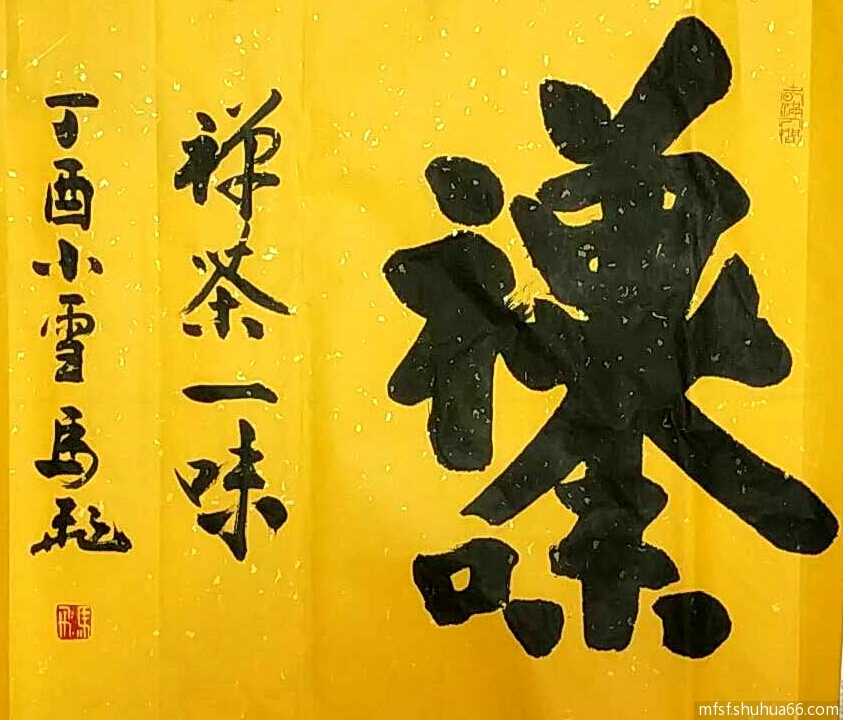 禅茶一味
丁酉小雪馬
mfsfshuhua66.com